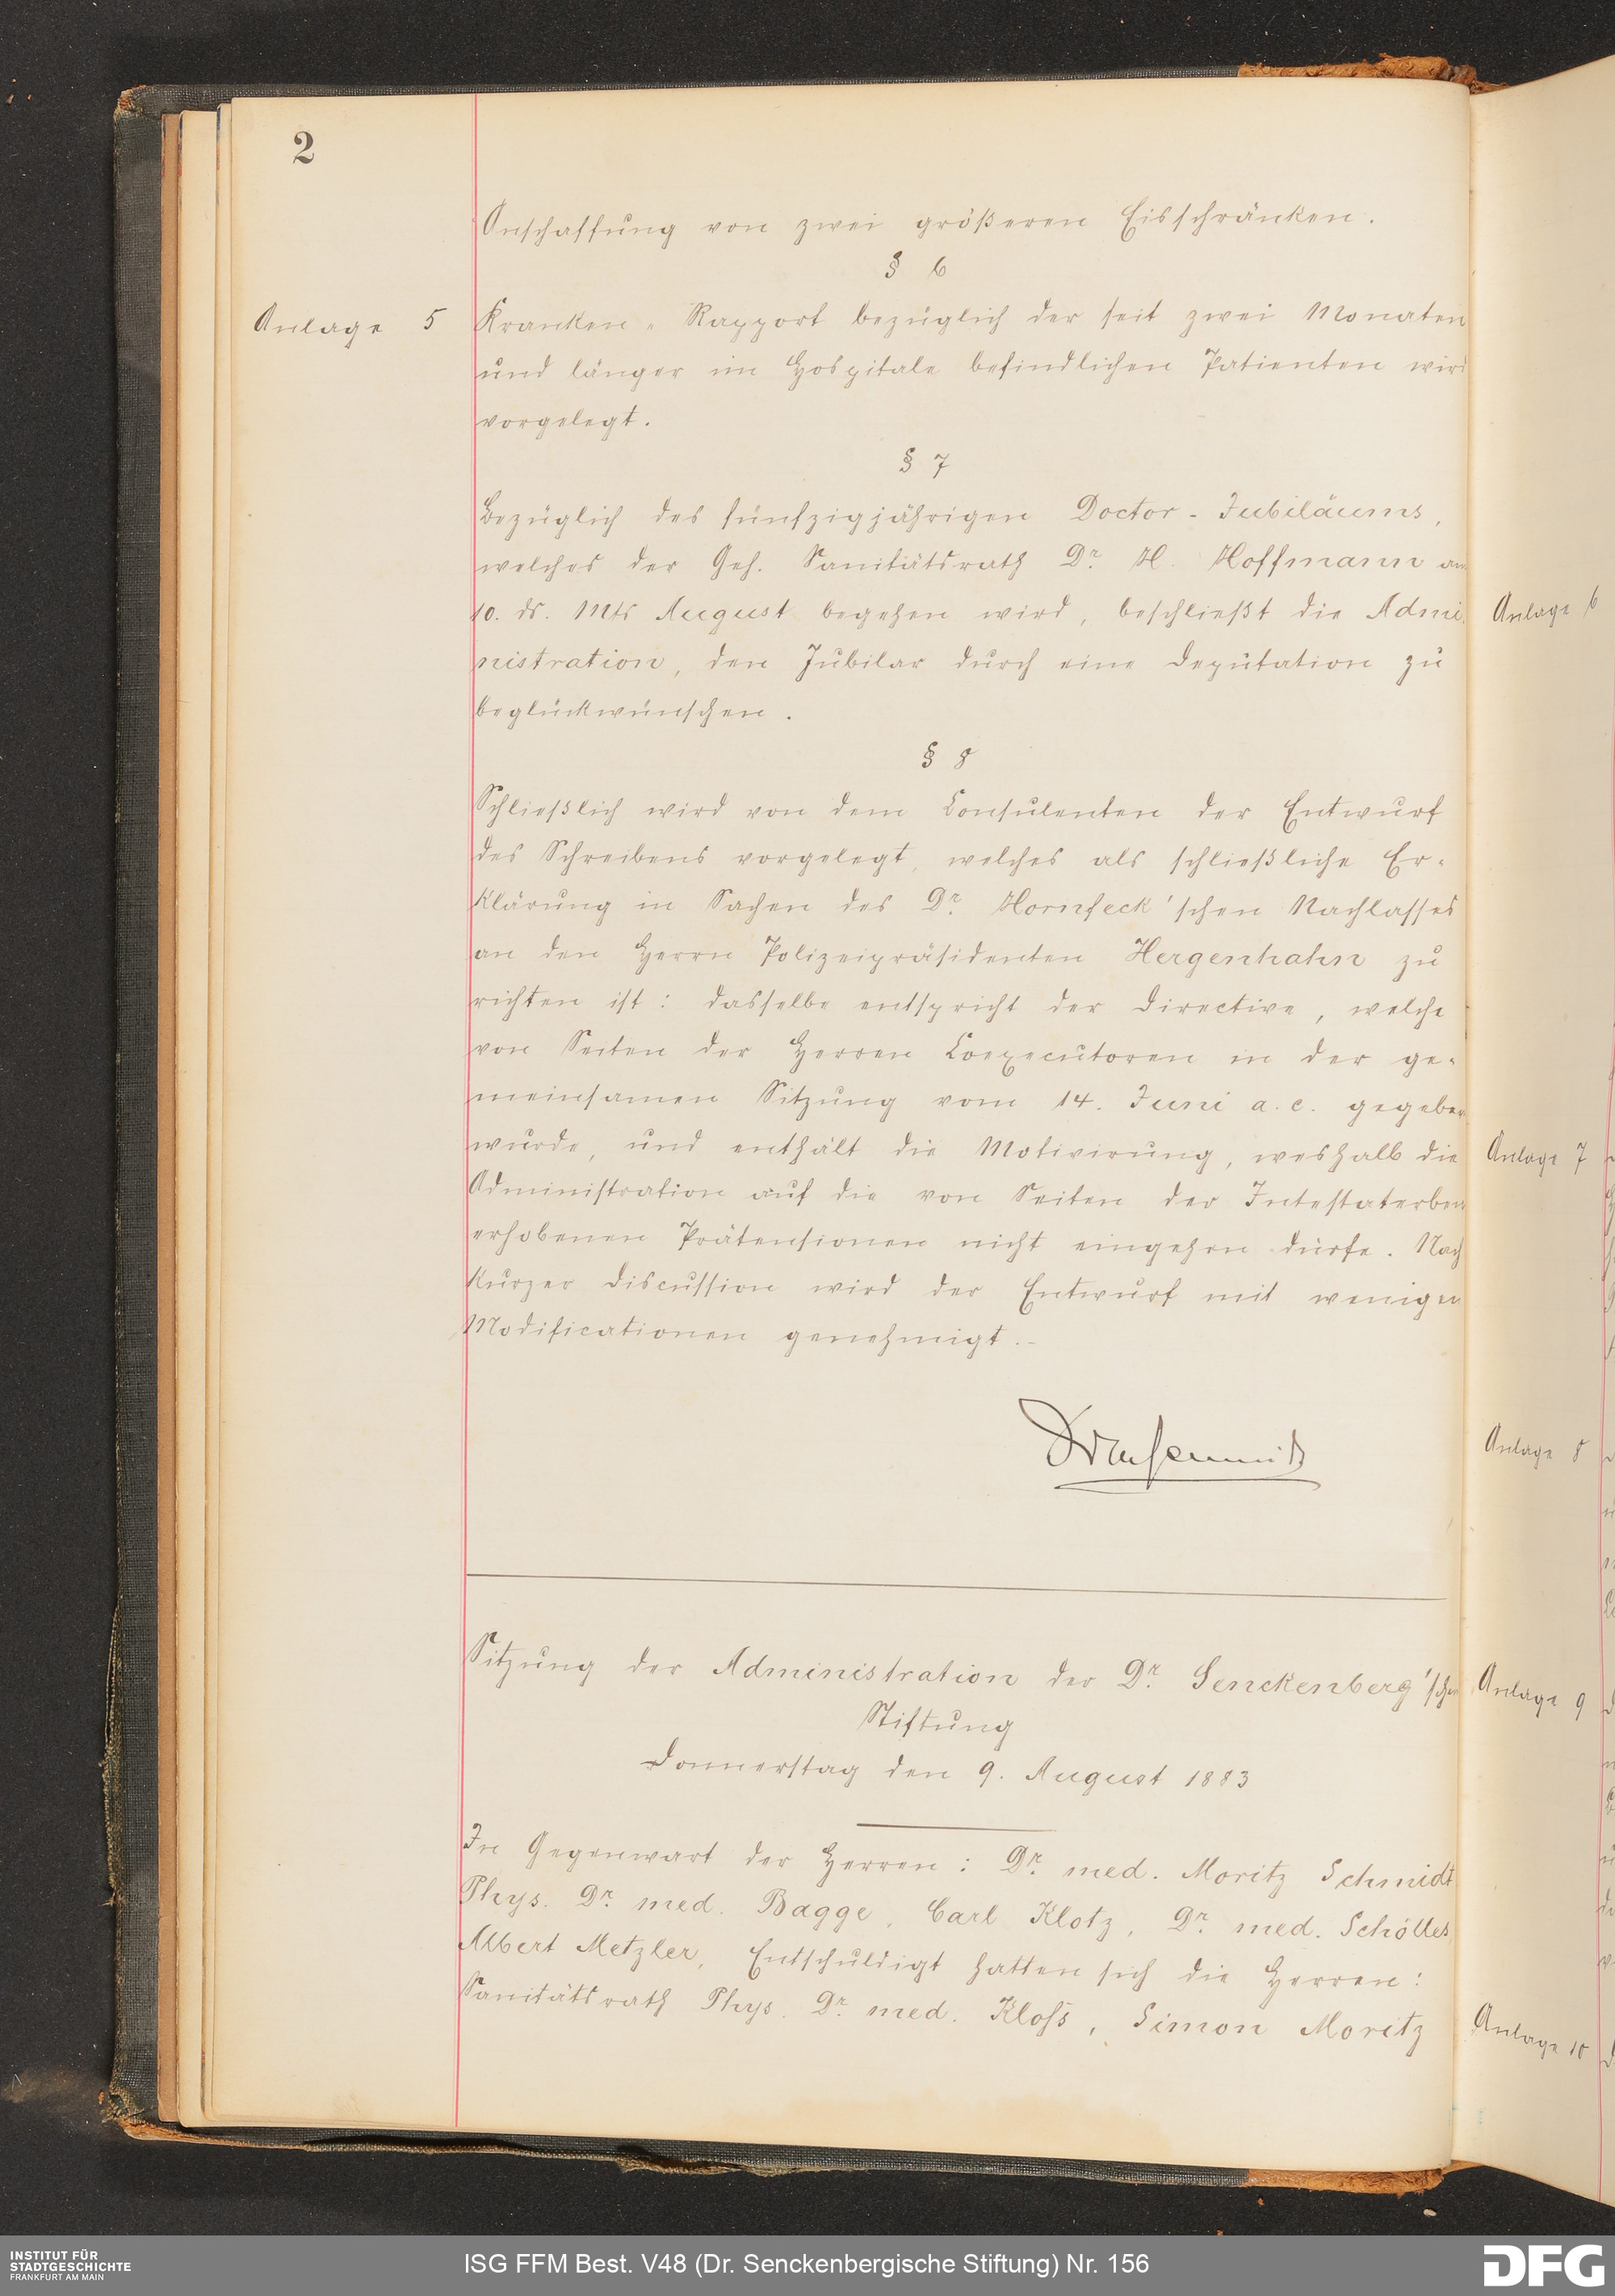 2
Anschaffung von zwei größeren Eisschränken.
§ 6
Anlage 5
Kranken-Rapport bezüglich der seit zwei Monaten
und länger im Hospitale befindlichen Patienten wird
vorgelegt.
§ 7
Bezüglich des fünfzigjährigen Doctor-Jubiläums,
welches der Geh. Sanitätsrath Dr. H. Hoffmann am
10. ds. Mts August begehen wird, beschließt die Admi-
nistration, den Jubilar durch eine Deputation zu
beglückwünschen.
§ 8
Schließlich wird von dem Consulenten der Entwurf
des Schreibens vorgelegt, welches als schließliche Er-
klärung in Sachen des Dr. Hornfeck'schen Nachlasses
an den Herrn Polizeipräsidenten Hergenhahn zu
richten ist: dasselbe entspricht der Directive, welche
von Seiten der Herren Coexecutoren in der ge-
meinsamen Sitzung vom 14. Juni a. c. gegeben
wurde, und enthält die Motivirung, weshalb die
Administration auf die von Seiten der Intestaterben
erhobenen Prätensionen nicht eingehen dürfe. Nach
kurzer Discussion wird der Entwurf mit wenigen
Modificationen genehmigt.-
Sitzung der Administration der Dr. Senckenberg'schen
Stiftung
Donnerstag den 9. August 1883
In Gegenwart der Herren: Dr. med. Moritz Schmidt
Phys. Dr. med. Bagge, Carl Klotz, Dr. med. Schölles,
Albert Metzler, Entschuldigt hatten sich die Herren:
Sanitätsrath Phys. Dr. med. Kloss, Simon Moritz
Anlage 6
Anlage 7
Anlage 8
Anlage 9
Anlage 10
INSTITUT FÜR
STADTGESCHICHTE
FRANKFURT AM MAIN
ISG FFM Best. V48 (Dr. Senckenbergische Stiftung) Nr. 156
DFG